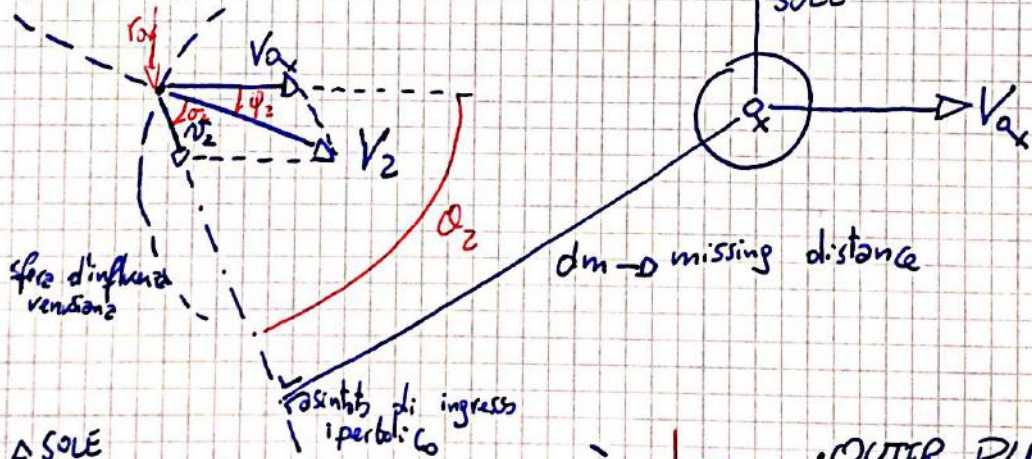 SOLE
V♀
φ₂
σ₂
v₂
V₂
♀
V♀
θ₂
dm → missing distance
sfera d'influenza
venusiana
asintoto di ingresso
iperbolico
SOLE